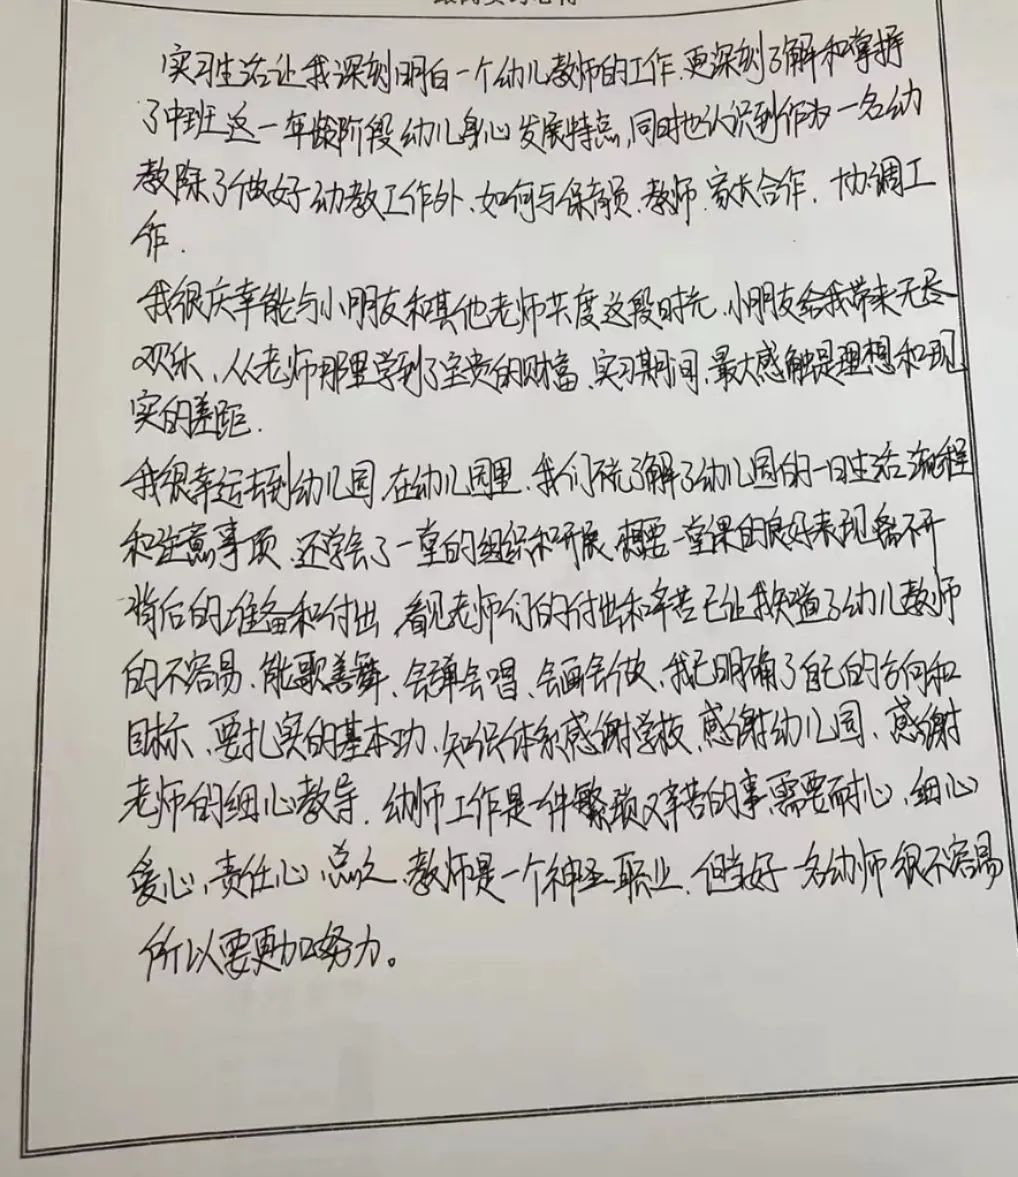 实习生活让我深刻明白一个幼儿教师的工作.更深刻了解和掌握
了中班这一年龄阶段幼儿身心发展特点,同时也认识到作为一名幼
教除了做好幼教工作外、如何与保育员、教师、家长合作,协调工
作.
我很庆幸能与小朋友和其他老师共度这段时光,小朋友给我带来无尽
欢乐、从老师那里学到了宝贵的财富、实习期间,最大感触是理想和现
实的差距.
我很幸运去到幼儿园,在幼儿园里、我们不光了解了幼儿园的一日生活流程
和注意事项,还学会了一堂的组织和开展,想要一堂课的良好表现离不开
背后的准备和付出,看见老师们的付出和辛苦已让我知道了幼儿教师
的不容易、能歌善舞、会弹会唱、会画会做、我已明确了自己的方向和
目标、要扎实的基本功、知识体系感谢学校、感谢幼儿园、感谢
老师的细心教导.幼师工作是一件繁琐又辛苦的事,需要耐心、细心
爱心、责任心、总之、教师是一个神圣职业、但当好一名幼师很不容易
所以要更加努力。